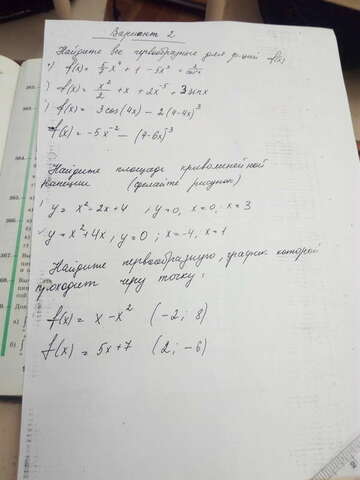 Вариант 2
Найдите все первообразные для ф-ций f(x)
f(x) = x⁴ + 1 - 5x²
f(x) = x²/2 + x + 2x⁻⁵ + 3 sin x
f(x) = 3 cos(4x) - 2(4-4x)³
f(x) = -5x⁻² - (4-6x)³
Найдите площадь криволинейной
трапеции (сделайте рисунок)
y = x² - 2x + 4 , y = 0, x = 0, x = 3
y = x² + 4x , y = 0 ; x = -4, x = 1
Найдите первообразную, график которой
проходит через точку:
f(x) = x - x² (-2; 8)
f(x) = 5x + 7 (2; -6)
364.
365.
366.
367.
368.
369.
а)
б)